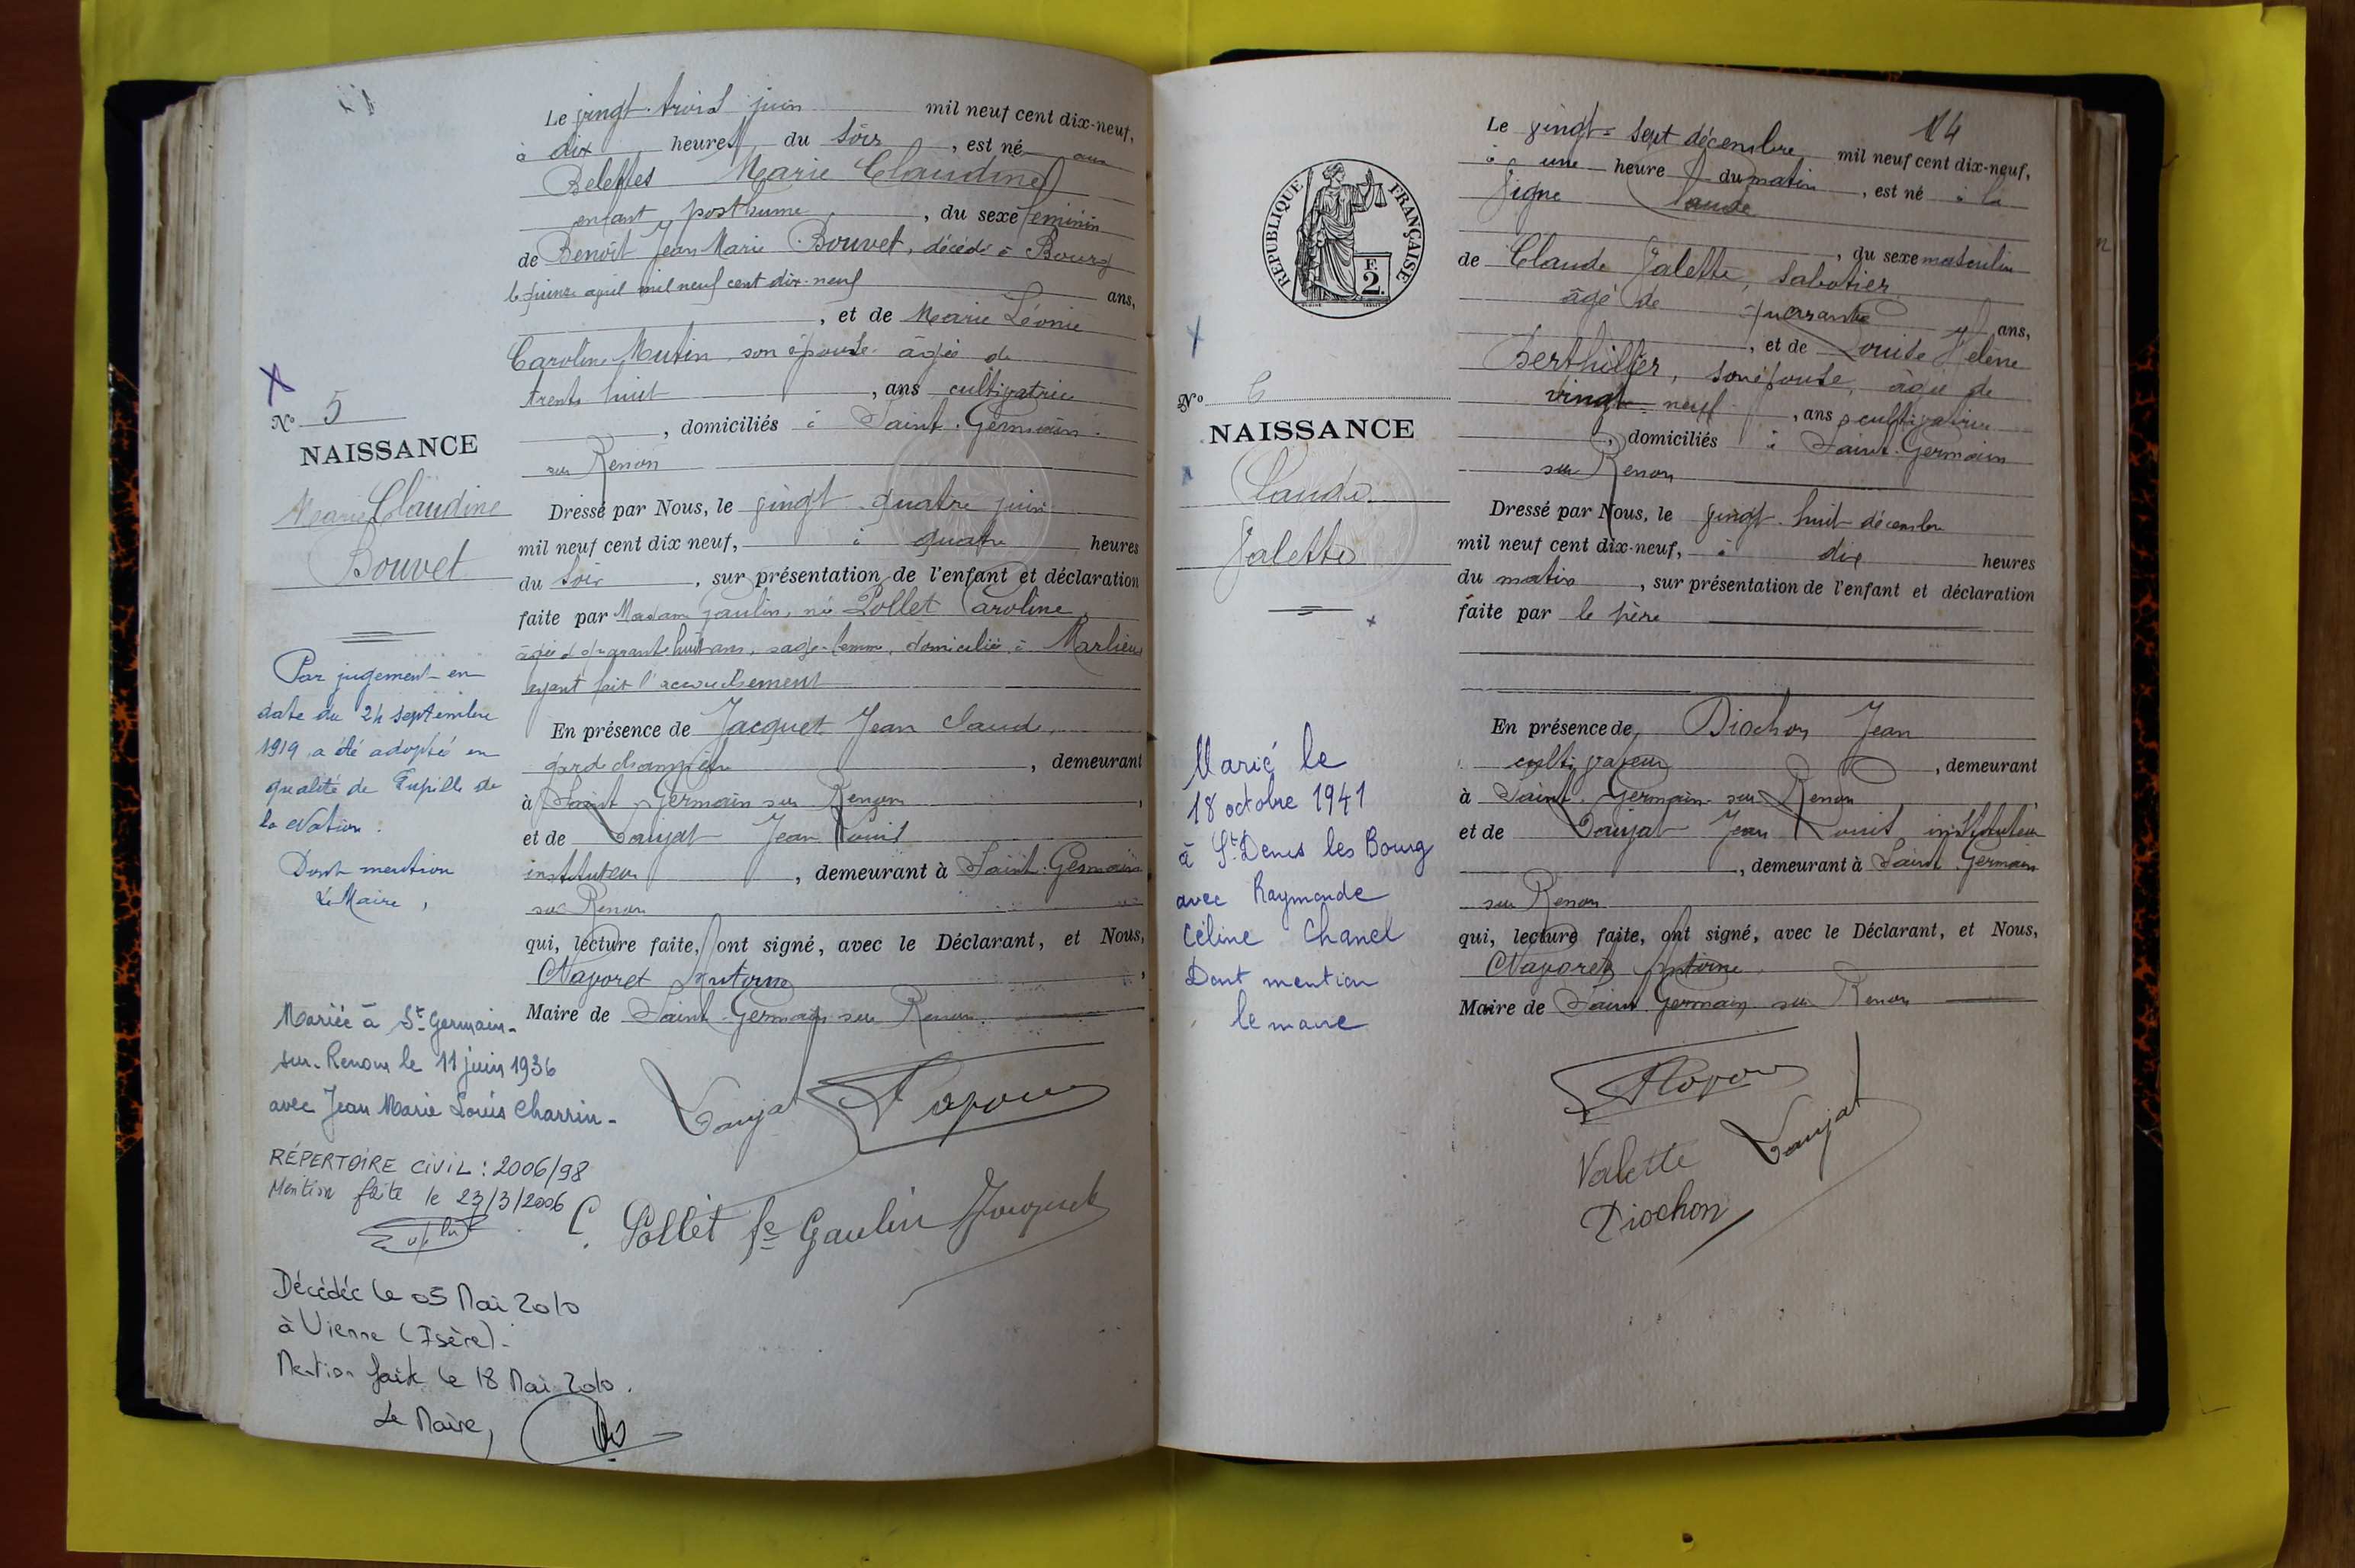 Le vingt-trois juin mil neuf cent dix-neuf,
à dix heures du soir, est né aux
Belettes Marie Claudine
enfant posthume, du sexe féminin
de Benoît Jean Marie Bouvet, décédé à Bourg
le quinze avril mil neuf cent dix-neuf ans,
, et de Marie Léonie
Caroline Mutin son épouse âgée de
trente huit, ans cultivatrice
, domiciliés à Saint-Germain-
sur Renon
Dressé par Nous, le vingt-quatre juin
mil neuf cent dix neuf, à quatre heures
du soir, sur présentation de l'enfant et déclaration
faite par Madame Gaulin, né Pollet Caroline,
âgée de quarante huit ans, sage-femme, domiciliée à Marlieux
ayant fait l'accouchement
En présence de Jacquet Jean Claude,
garde champêtre, demeurant
à Saint Germain sur Renon,
et de Vaujat Jean Louis
instituteur, demeurant à Saint-Germain
sur Renon
qui, lecture faite, ont signé, avec le Déclarant, et Nous,
Antoine
Maire de Saint-Germain sur Renon.
Vaujat
C. Pollet fe Gaulin Jacquet
N° 5
NAISSANCE
Marie Claudine
Bouvet
Par jugement en
date du 24 septembre
1919 a été adopté en
qualité de Pupille de
la Nation.
Dont mention
Le Maire,
Mariée à St Germain-
sur-Renon le 11 juin 1936
avec Jean Marie Louis Charrin-
RÉPERTOIRE CIVIL : 2006/98
Mention faite le 23/3/2006
Décédée le 05 Mai 2010
à Vienne (Isère).
Mention faite le 18 Mai 2010.
Le Maire,
14
Le vingt-sept décembre mil neuf cent dix-neuf,
à une heure du matin, est né à la
Vigne Claude
, du sexe masculin
de Claude Valette, sabotier
âgé de quarante ans,
, et de Louise Hélène
Berthillier, son épouse, âgée de
vingt-neuf, ans, cultivatrice
, domiciliés à Saint-Germain
sur Renon
Dressé par Nous, le vingt-huit décembre
mil neuf cent dix-neuf, à dix heures
du matin, sur présentation de l'enfant et déclaration
faite par le père
En présence de Diochon Jean
cultivateur, demeurant
à Saint-Germain-sur Renon,
et de Vaujat Jean Louis, instituteur
, demeurant à Saint Germain
sur Renon
qui, lecture faite, ont signé, avec le Déclarant, et Nous,
Antoine
Maire de Saint Germain sur Renon
Valette Vaujat
Diochon
RÉPUBLIQUE FRANÇAISE
F.
2.
N° 6
NAISSANCE
Claude
Valette
Marié le
18 octobre 1941
à St Denis les Bourg
avec Raymonde
Céline Chanel
Dont mention
le maire